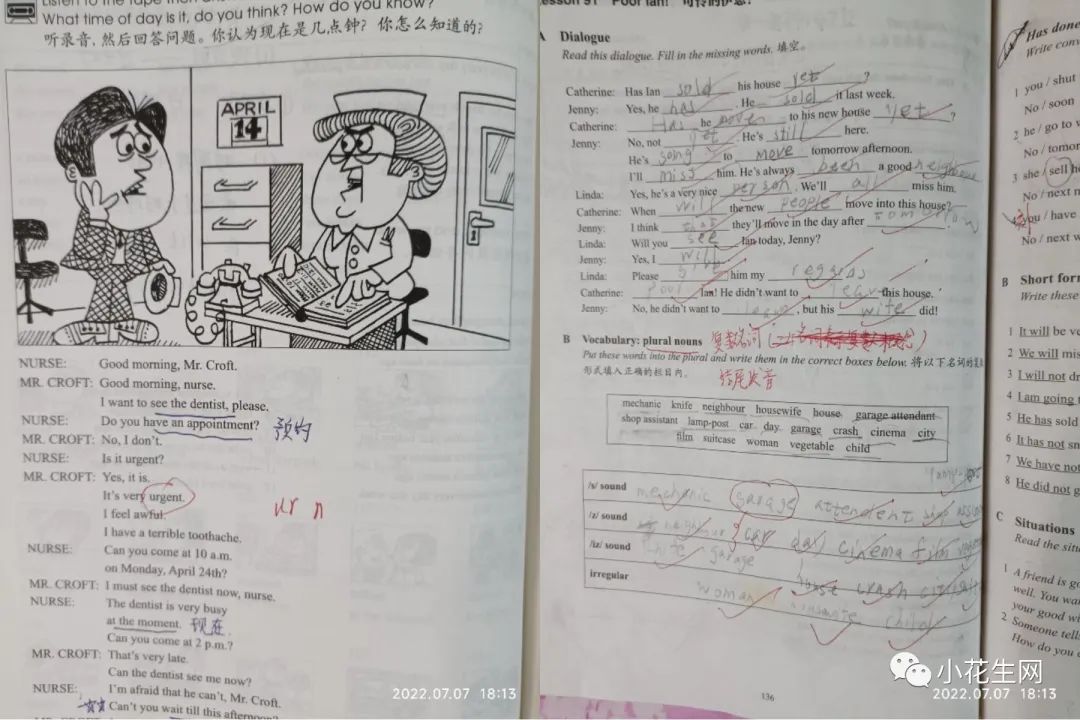 Listen to the tape then
What time of day is it, do you think? How do you know?
听录音, 然后回答问题。你认为现在是几点钟? 你怎么知道的?
APRIL
14
NURSE: Good morning, Mr. Croft.
MR. CROFT: Good morning, nurse.
I want to see the dentist, please.
NURSE: Do you have an appointment? 预约
MR. CROFT: No, I don't.
NURSE: Is it urgent?
MR. CROFT: Yes, it is.
It's very urgent.
ur n
I feel awful.
I have a terrible toothache.
NURSE: Can you come at 10 a.m.
on Monday, April 24th?
MR. CROFT: I must see the dentist now, nurse.
NURSE: The dentist is very busy
at the moment. 现在
Can you come at 2 p.m.?
MR. CROFT: That's very late.
Can the dentist see me now?
NURSE: I'm afraid that he can't, Mr. Croft.
Can't you wait till this afternoon?
MR. CROFT:
2022.07.07 18:13
Lesson 91 Poor Ian! 可怜的伊恩!
A Dialogue
Read this dialogue. Fill in the missing words. 填空。
Catherine: Has Ian sold his house yet ?
Jenny: Yes, he has . He sold it last week.
Catherine: Has he moven to his new house yet ?
Jenny: No, not yet . He's still here.
He's going to move tomorrow afternoon.
I'll miss him. He's always been a good
Linda: Yes, he's a very nice person . We'll all miss him.
Catherine: When will the new people move into this house?
Jenny: I think that they'll move in the day after tomorrow .
Linda: Will you see Ian today, Jenny?
Jenny: Yes, I will
Linda: Please give him my regards
Catherine: Poor Ian! He didn't want to leave this house.
Jenny: No, he didn't want to leave , but his wife did!
B Vocabulary: plural nouns 复数名词
Put these words into the plural and write them in the correct boxes below. 将以下名词的复
形式填入正确的栏目内。 结尾发音
mechanic knife neighbour housewife house garage attendant
shop assistant lamp-post car day garage crash cinema city
film suitcase woman vegetable child
/s/ sound mechanic garage attendent shop
/z/ sound neighbour car day cinema film
/iz/ sound garage house crash
irregular woman child
136
Has done
Write con
1 you / shut
No / soon
2 he / go to
No / tomor
3 she / sell he
No / next
4 you / have
No / next w
B Short form
Write these
1 It will be
2 We will mis
3 I will not dr
4 I am going
5 He has sold
6 It has not sn
7 We have not
8 He did not g
C Situations
Read the situ
1 A friend is go
well. You wa
your good wi
2 Someone tell
How do you
小花生网
2022.07.07 18:13